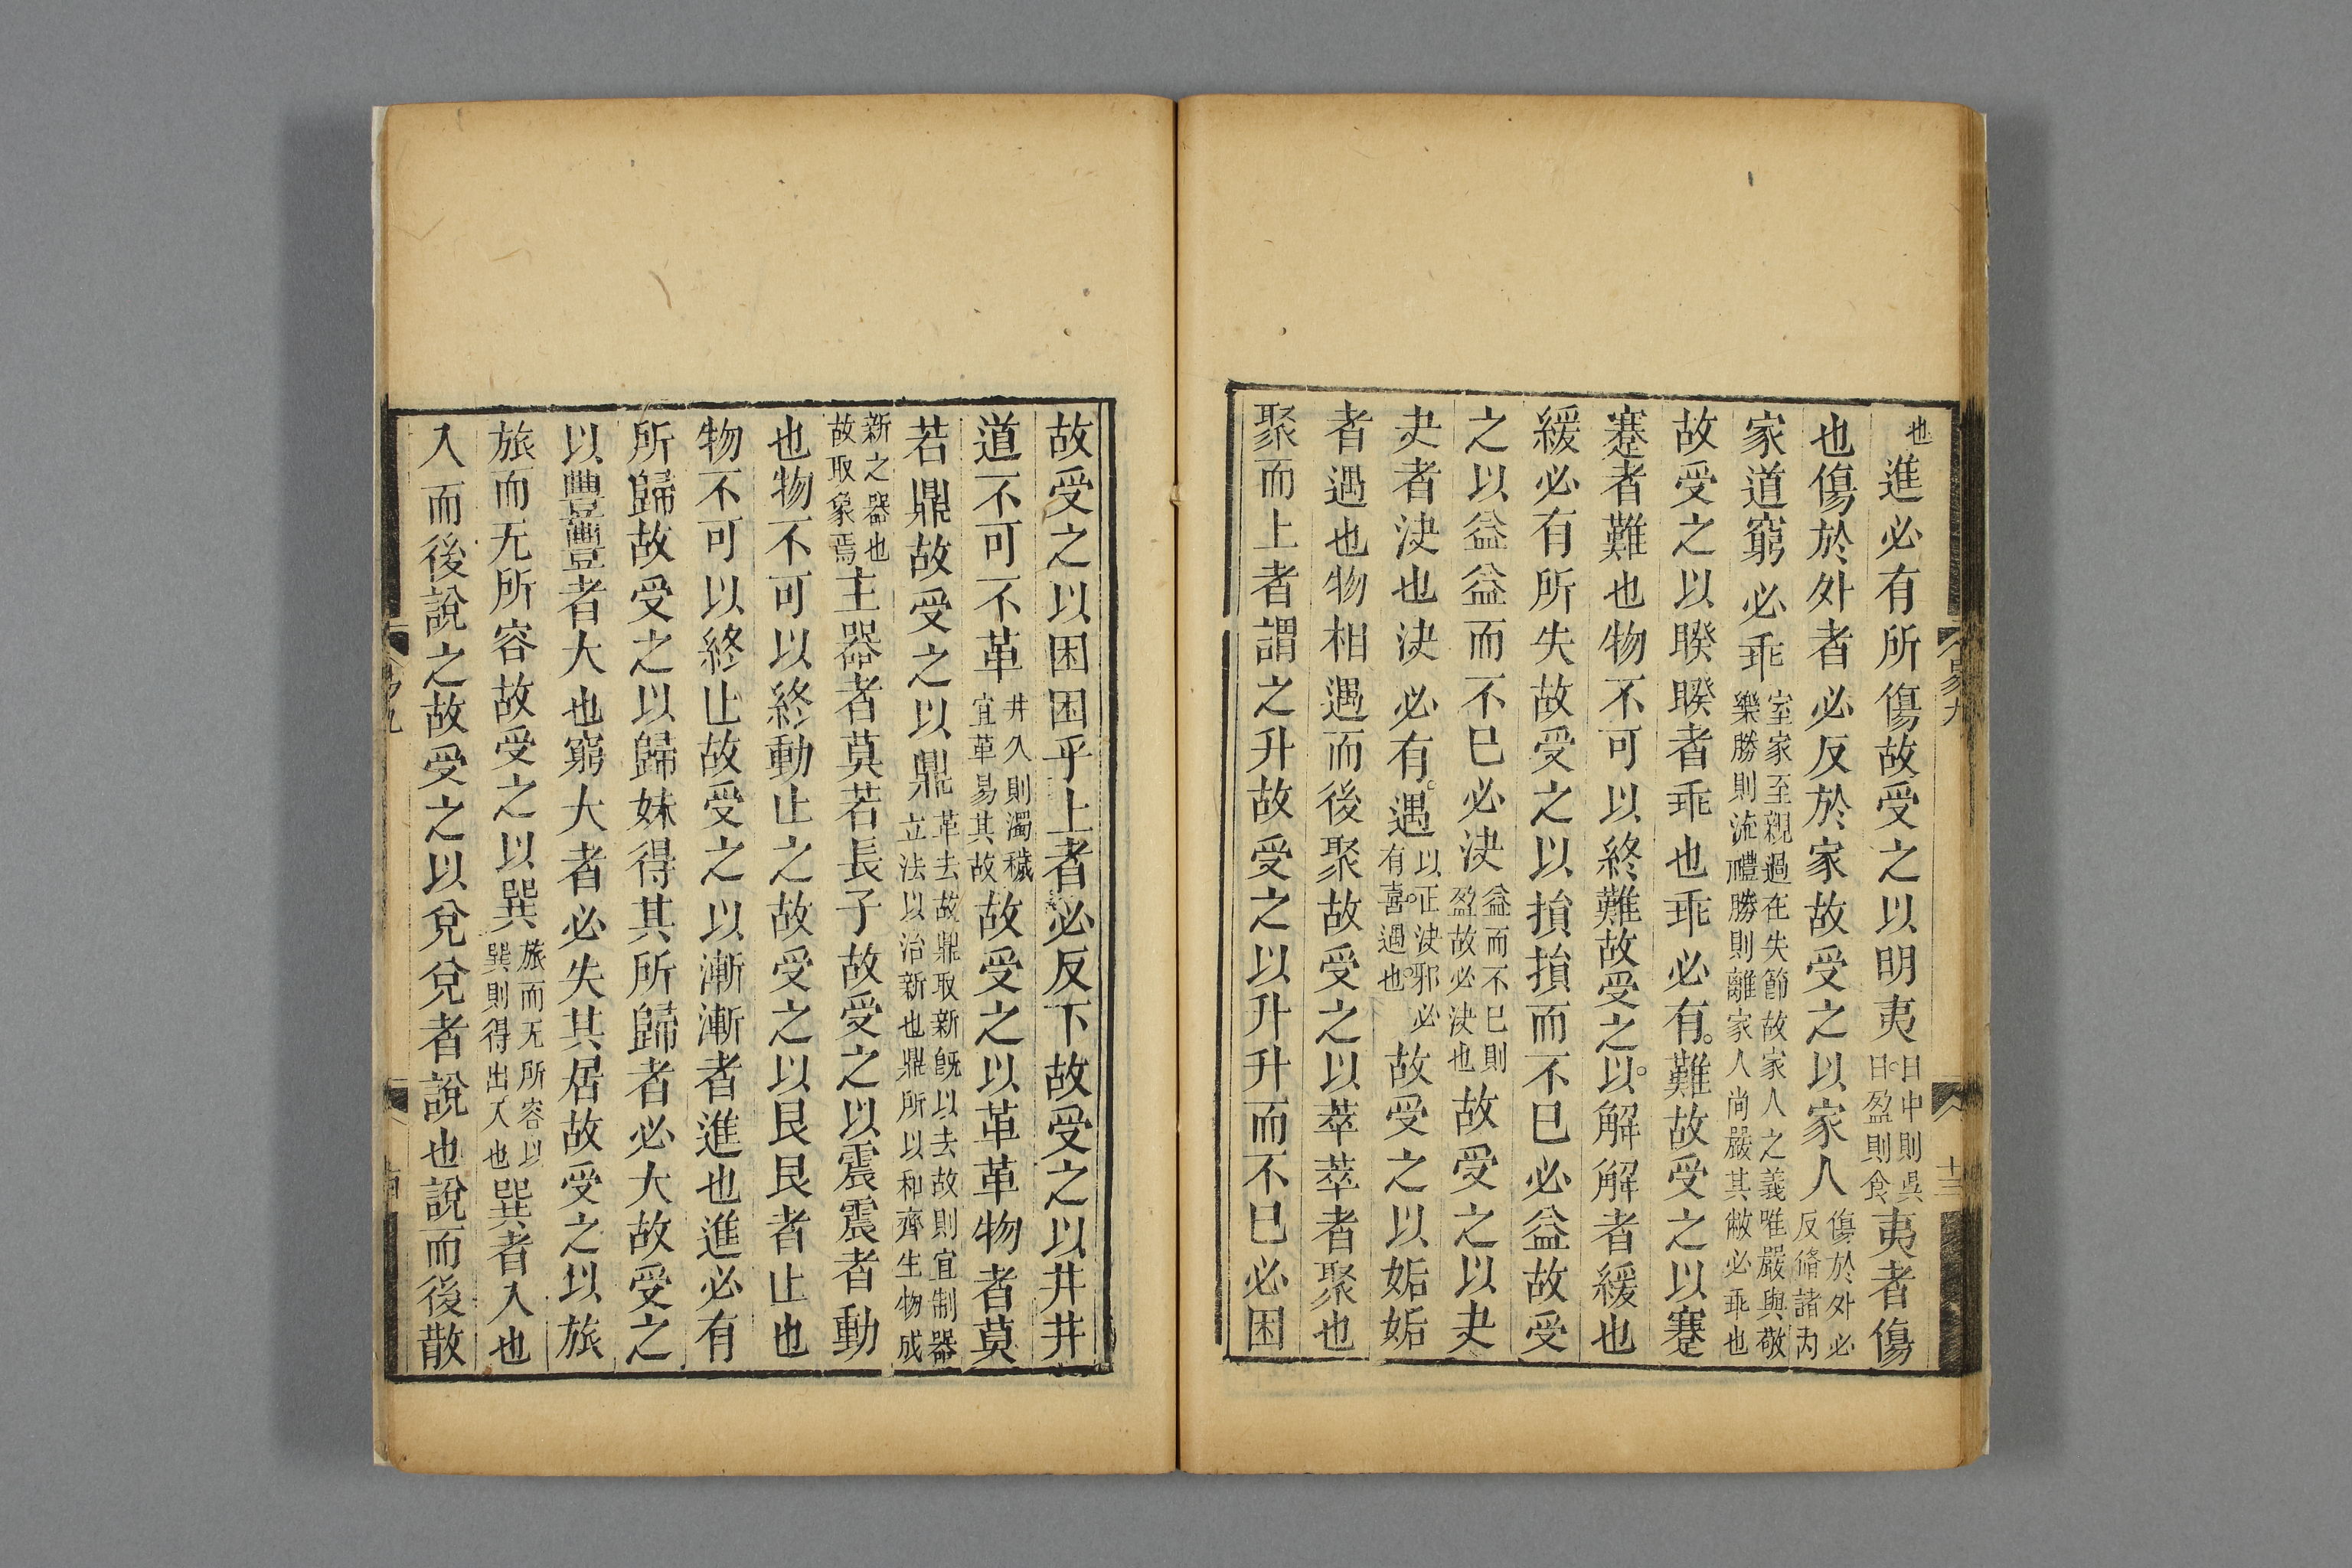 也進必有所傷故受之以明夷日中則昃日盈則食夷者傷
也傷於外者必反於家故受之以家人傷於外必反脩諸內
家道窮必乖室家至親過在失節故家人之義唯嚴與敬樂勝則流禮勝則離家人尚嚴其敝必乖也
故受之以睽睽者乖也乖必有難故受之以蹇
蹇者難也物不可以終難故受之以解解者緩也
緩必有所失故受之以損損而不已必益故受
之以益益而不已必決益而不已則盈故必決也故受之以夬
夬者決也決必有遇以正決邪必有喜遇也故受之以姤姤
者遇也物相遇而後聚故受之以萃萃者聚也
聚而上者謂之升故受之以升升而不已必困
易九
十三
故受之以困困乎上者必反下故受之以井井
道不可不革井久則濁穢宜革易其故故受之以革革物者莫
若鼎故受之以鼎革去故鼎取新旣以去故則宜制器立法以治新也鼎所以和齊生物成
新之器也故取象焉主器者莫若長子故受之以震震者動
也物不可以終動止之故受之以艮艮者止也
物不可以終止故受之以漸漸者進也進必有
所歸故受之以歸妹得其所歸者必大故受之
以豐豐者大也窮大者必失其居故受之以旅
旅而无所容故受之以巽旅而无所容以巽則得出入也巽者入也
入而後說之故受之以兌兌者說也說而後散